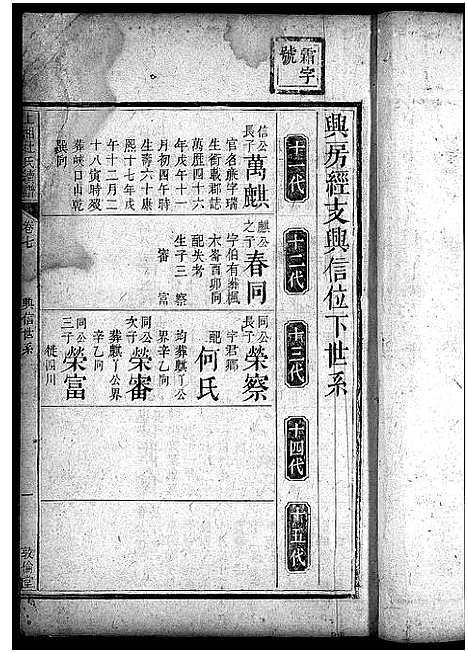 霜字
號
興房經支興信位下世系
十一代
十二代
十三代
十四代
十五代
信公
長子
萬麒
官名麻字瑞
生衛載郡誌
萬歴四十六
年戊午十一
月初四午時
生壽六十康
熙十七年戊
午十二月二
十八寅時歿
葬峽口山乾
巽向
麒公
之子
春同
字伯有葬楓
木崙酉卯向
配失考
生子三
察
審
富
同公
長子
榮察
字君鄉
配
何氏
均葬麒丫公
界辛乙向
同公
次子
榮審
葬麒丫公界
辛乙向
同公
三子
榮富
徙四川
杜氏續譜
卷七
興信世系
一
敦倫堂